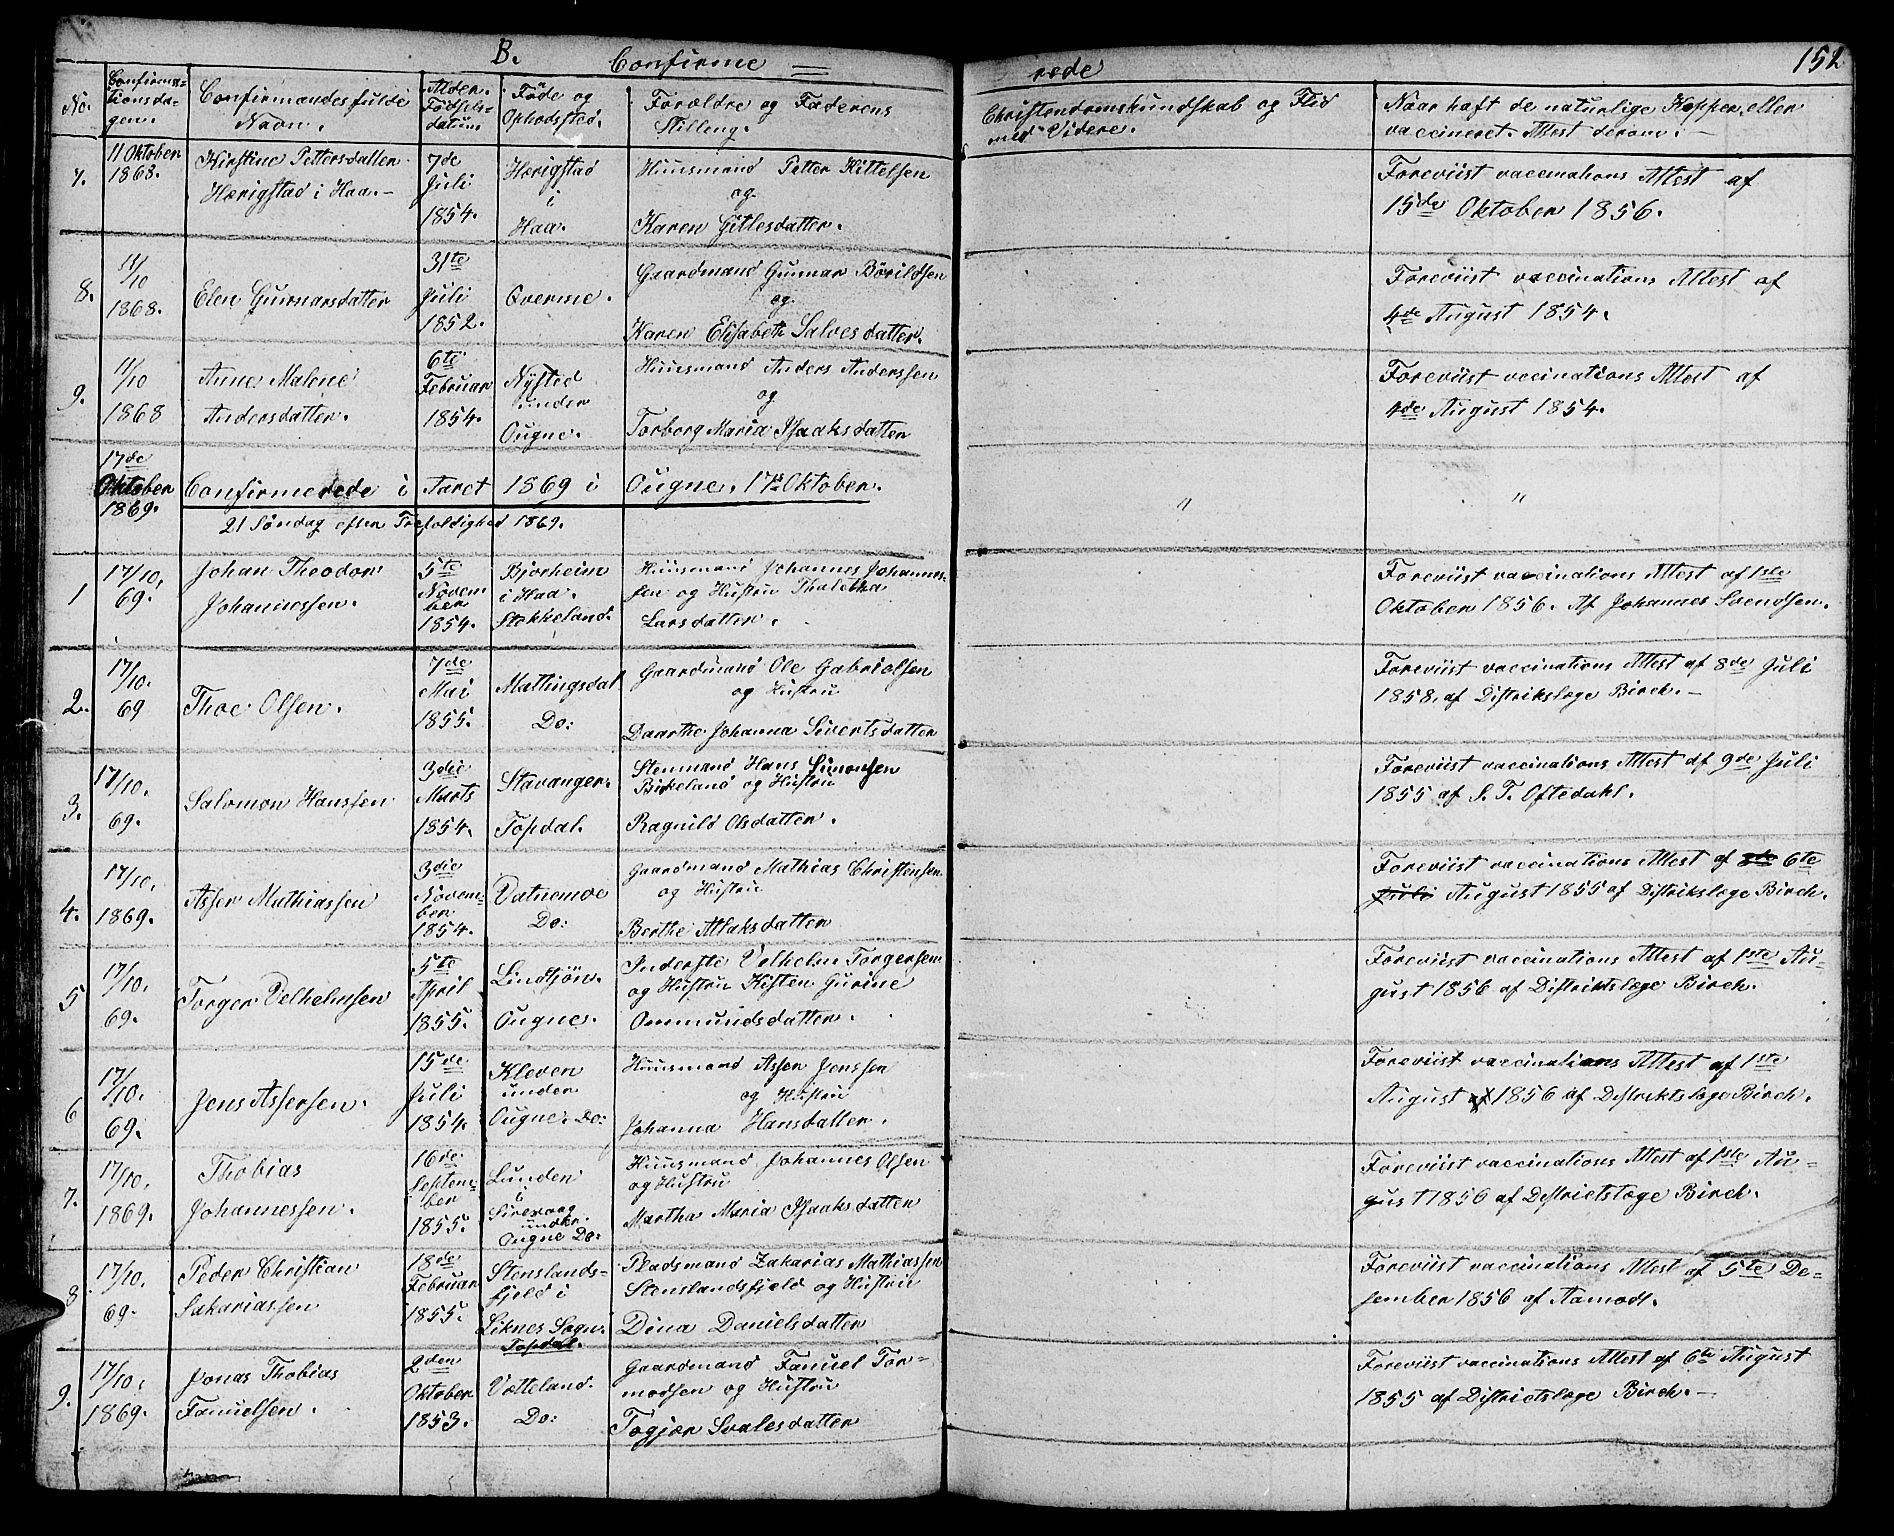 B. Confirme = rede 152
No. Confirma-
tionsda-
gen. Confirmandes fulde
Navn. Alder.
Fødsels-
datum Føde og
Opholdsted. Forældre og Faderens
Stilling. Christendomskundskab og Flid
med Videre. Naar haft de naturlige Kopper, eller
vaccineret. Attest derom. -
7. 11 Oktober
1868. Kirstine Pettersdatter
Hærigstad i Haa. - 7de
Juli
1854. Hærigstad
i
Haa. Huusmand Petter Kittelsen
og
Karen Gitlesdatter. Foreviist vaccinations Attest af
15de Oktober 1856.
8. 11/10
1868. Elen Gunnarsdatter 31te
Juli
1852. Qverme. Gaardmand Gunnar Börildsen
og
Karen Elisabeth Salvesdatter. Foreviist vaccinations Attest af
4de August 1854.
9. 11/10
1868 Anne Malene
Andersdatter. 6te
Februar
1854. Nysted
under
Ougne. Huusmand Anders Anderssen
og
Torborg Maria Isaaksdatter Foreviist veccinations Attest af
4de August 1854.
17de
Oktober
1869. Confirmerede i Aaret 1869 i Ougne. 17de Oktober.
21 Söndag efter Trefoldighed 1869. " "
1 17/10.
69. Johan Theodor
Johannessen. 5te
Novem-
ber
1854. Bjorheim
i Haa.
Stokkeland. Huusmand Johannes Johannes-
sen og Hustru Thaletha
Larsdatter. Foreviist vaccinations Attest af 1ste
Oktober 1856. Af Johannes Svendsen.
2. 17/10.
69 Thoe Olsen. 7de
Mai
1855. Mattingsdal
Do: Gaardmand Ole Gabrielsen
og Hustru
Daarthe Johanna Sivertsdatter Foreviist vaccinations Attest af 8de Juli
1858. af Distriktslæge Birch. -
3. 17/10.
69. Salomon Hanssen 3die
Marts
1854. Stavanger.
Topdal. Stenmand Hans Simonsen
Birkeland og Hustru
Ragnild Olsdatter. Foreviist vaccinations Attest af 9de Juli
1855 af S. T. Oftedahl.
4. 17/10.
1869. Asser Mathiassen 3die
Novem-
ber
1854. Vatnemoe
Do: Gaardmand Mathias Christensen
og Hustru
Berthe Atlaksdatter Foreviist vaccinations Attest af 8de 6te
Juli August 1855 af Distrikslæge Birch.
5 17/10.
69. Torger Velhelmsen 5te
April
1855. Lindtjön.
Ougne. Inderste Velhelm Torgersen
og Hustru Kisten Gurine
Ommundsdatter. Foreviist vaccinations Attest af 1ste Au-
gust 1856 af Distriktslæge Birch.
6 17/10.
69. Jens Assersen. 15de
Juli
1854. Kleven
under
Ougne. Do: Huusmand Asser Jenssen
og Hustru
Johanna Hansdatter. Foreviist vaccinations Attest af 1ste
August 1856 af Distriktslæge Birch.
7. 17/10.
1869. Thobias
Johannessen. 16de
Septem-
ber
1855. Lunden
i
Sirevaag
under
Ougne Do: Huusmand Johannes Olsen
og Hustru
Martha Maria Isaaksdatter Foreviist vaccinations Attest af 1ste Au-
gust 1856 af Districtslæge Birch.
8 17/10.
69. Peder Christian
Sakariassen 18de
Februar
1855. Stenslands-
fjeld i
Liknes Sogn.
Topdal. Pladsmand Zakarias Mathiassen
Stenslandsfjeld og Hustru
Dina Danielsdatter Foreviist vaccinations Attest af 5te De-
sember 1856 af Aamodt.
9. 17/10.
1869. Jonas Thobias
Fanuelsen. 2den
Oktober
1853. Vætteland.
Do: Gaardmand Fanuel Tor-
modsen og Hustru
Togjær Svalesdatter Foreviist vaccinations Attest af 6te August
1855 af Districtslæge Birch. -